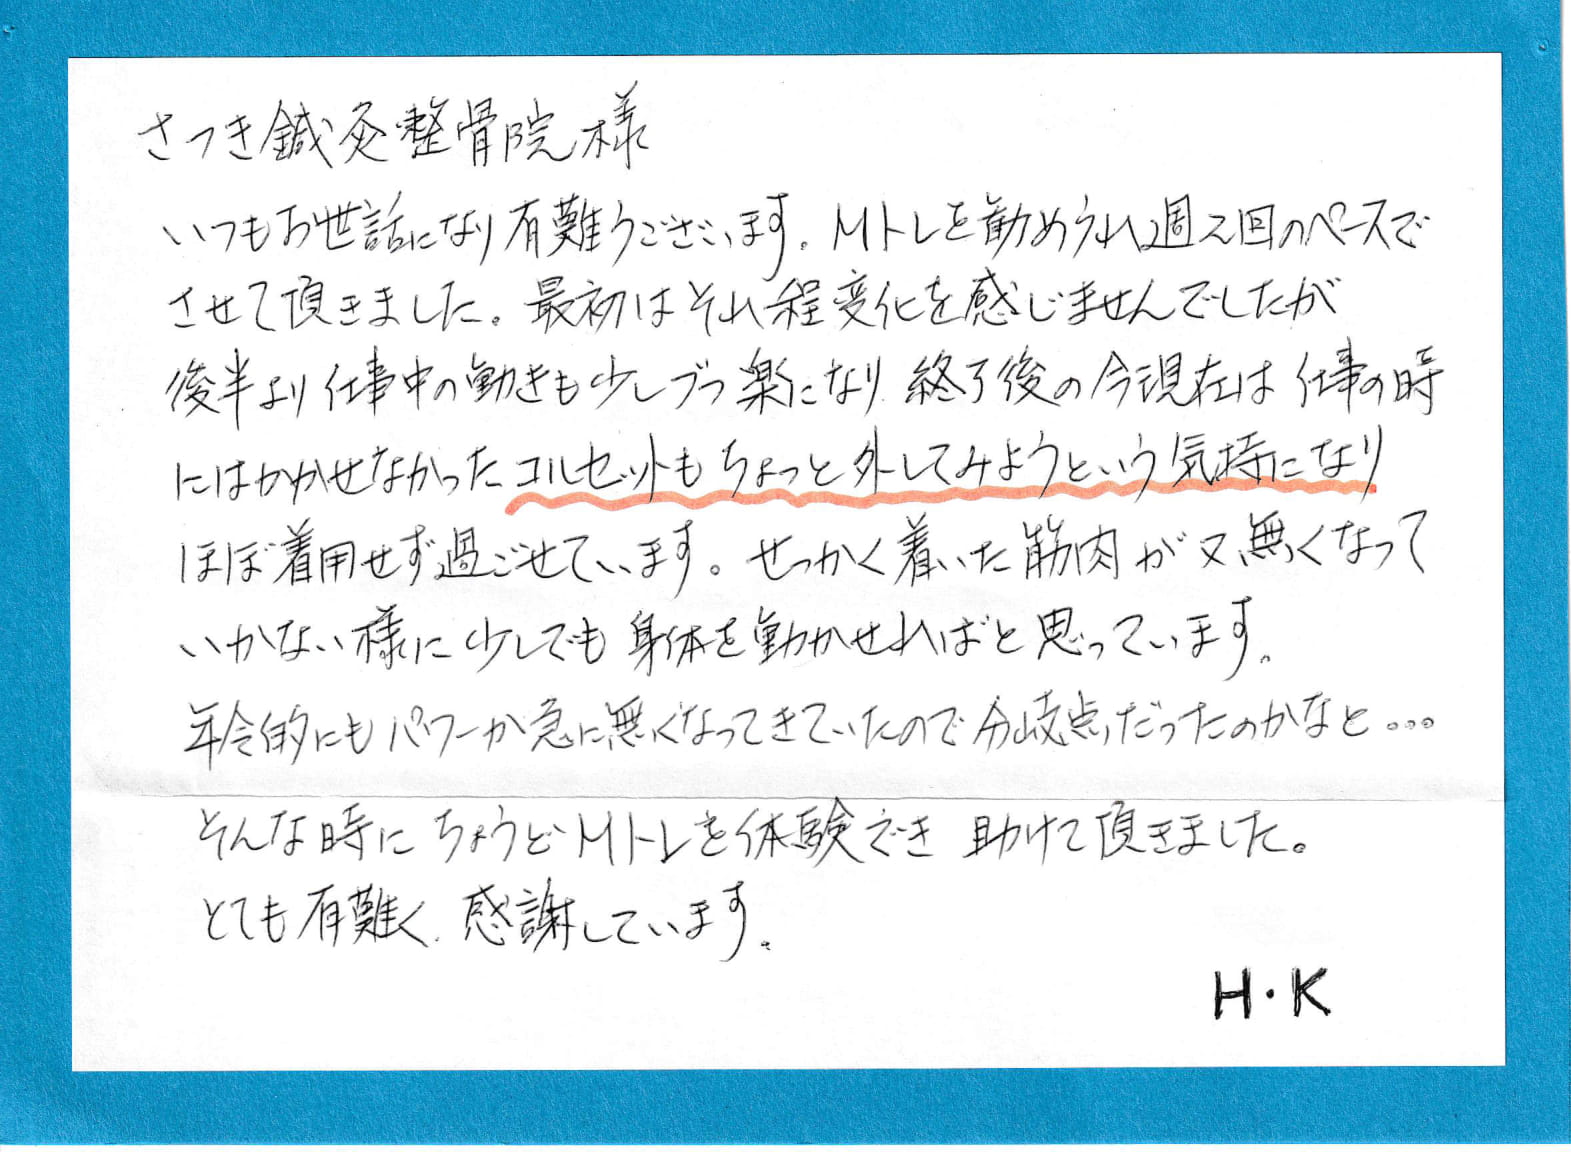 さつき鍼灸整骨院様
いつもお世話になり有難うございます。Mトレを勧められ週2回のペースで
させて頂きました。最初はそれ程変化を感じませんでしたが
後半より仕事中の動きも少しづつ楽になり終了後の今現在は仕事の時
にはかかせなかったコルセットもちょっと外してみようという気持になり
ほぼ着用せず過ごせています。せっかく着いた筋肉が又無くなって
いかない様に少しでも身体を動かせればと思っています。
年令的にもパワーが急に無くなってきていたので分岐点だったのかなと...
そんな時にちょうどMトレを体験でき助けて頂きました。
とても有難く感謝しています。
H・K